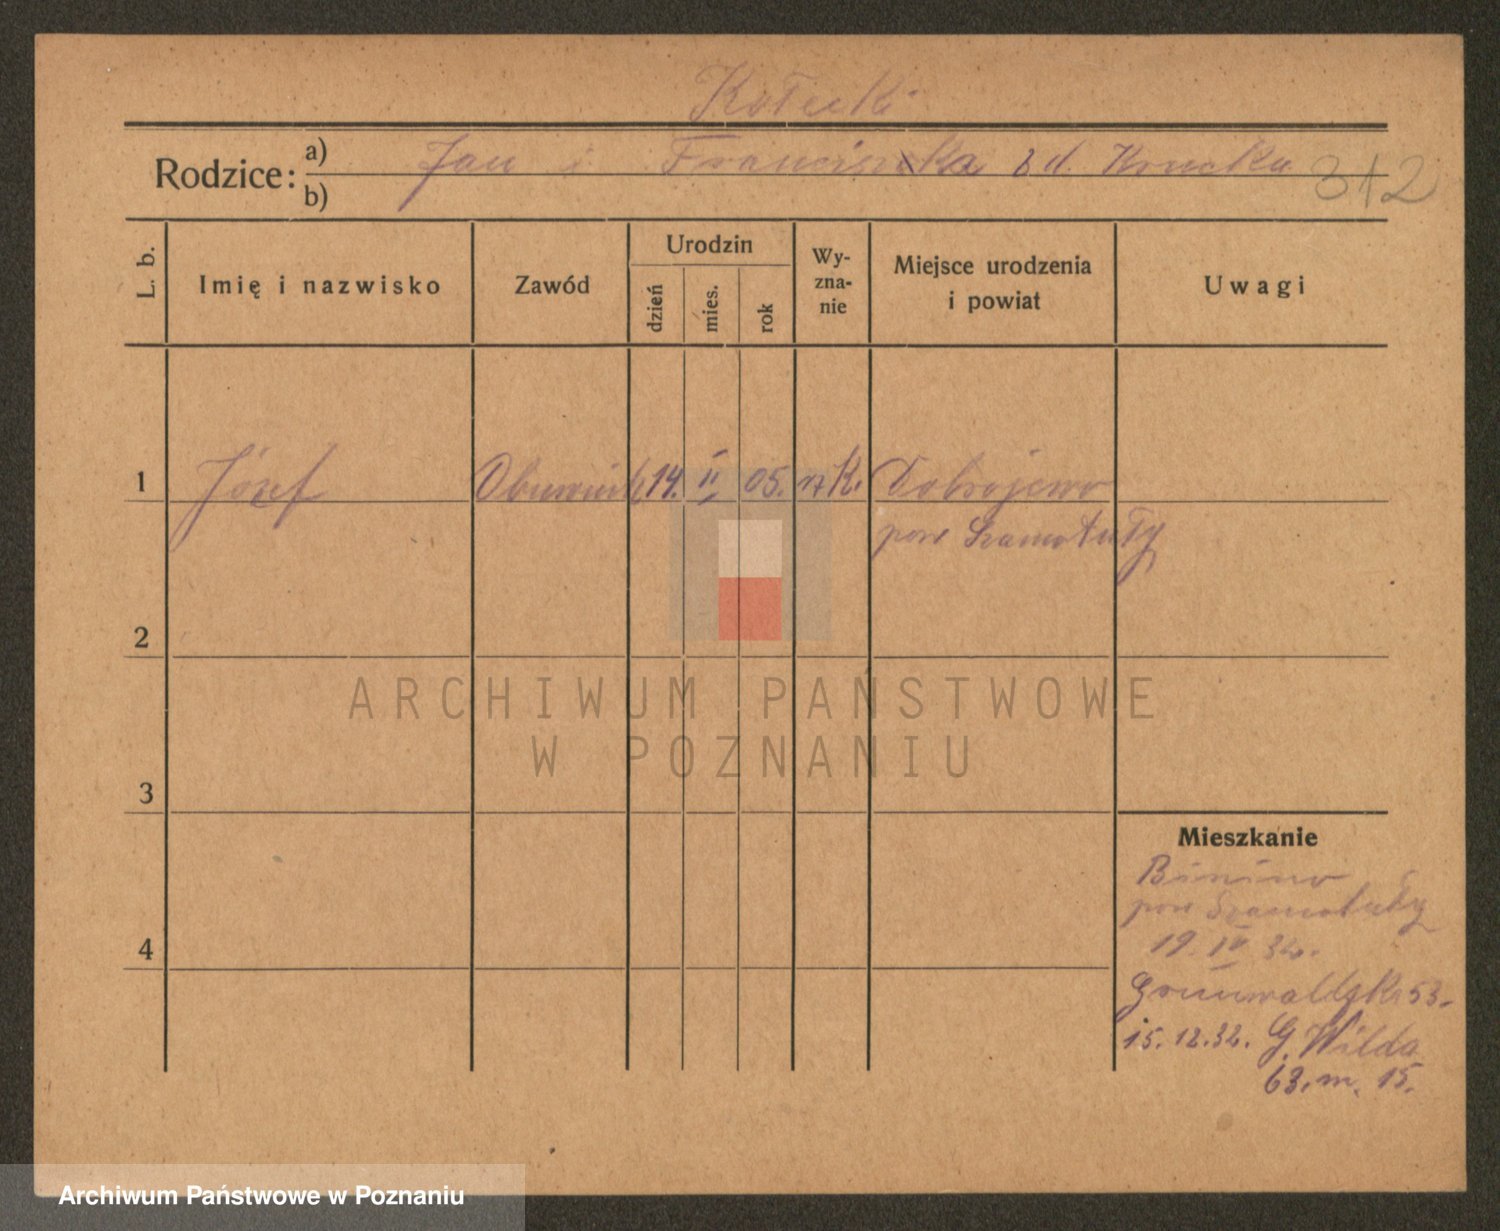 Kołecki
Rodzice: a) Jan i Franciszka
b)
312
L. b.
Imię i nazwisko
Zawód
Urodzin
dzień
mies.
rok
Wy-
zna-
nie
Miejsce urodzenia
i powiat
Uwagi
1 Józef 14. II 05. K. Dobrojewo
pow Szamotuły
2
3
4
Mieszkanie
Binino
pow Szamotuły
19. IV 32.
Grunwaldzka 53.
15. 12. 32. G. Wilda
63. m. 15.
ARCHIWUM PAŃSTWOWE
W POZNANIU
Archiwum Państwowe w Poznaniu